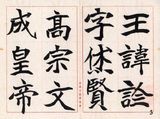 王諱詮
字休賢
高宗文
成皇帝